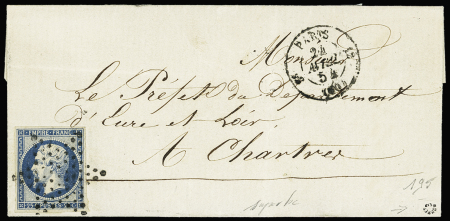 PARIS
24
54
(60)
Monsieur
Le Préfet du Département
d'Eure et Loir,
A Chartres
EMPIRE FRANC.
25 c
195